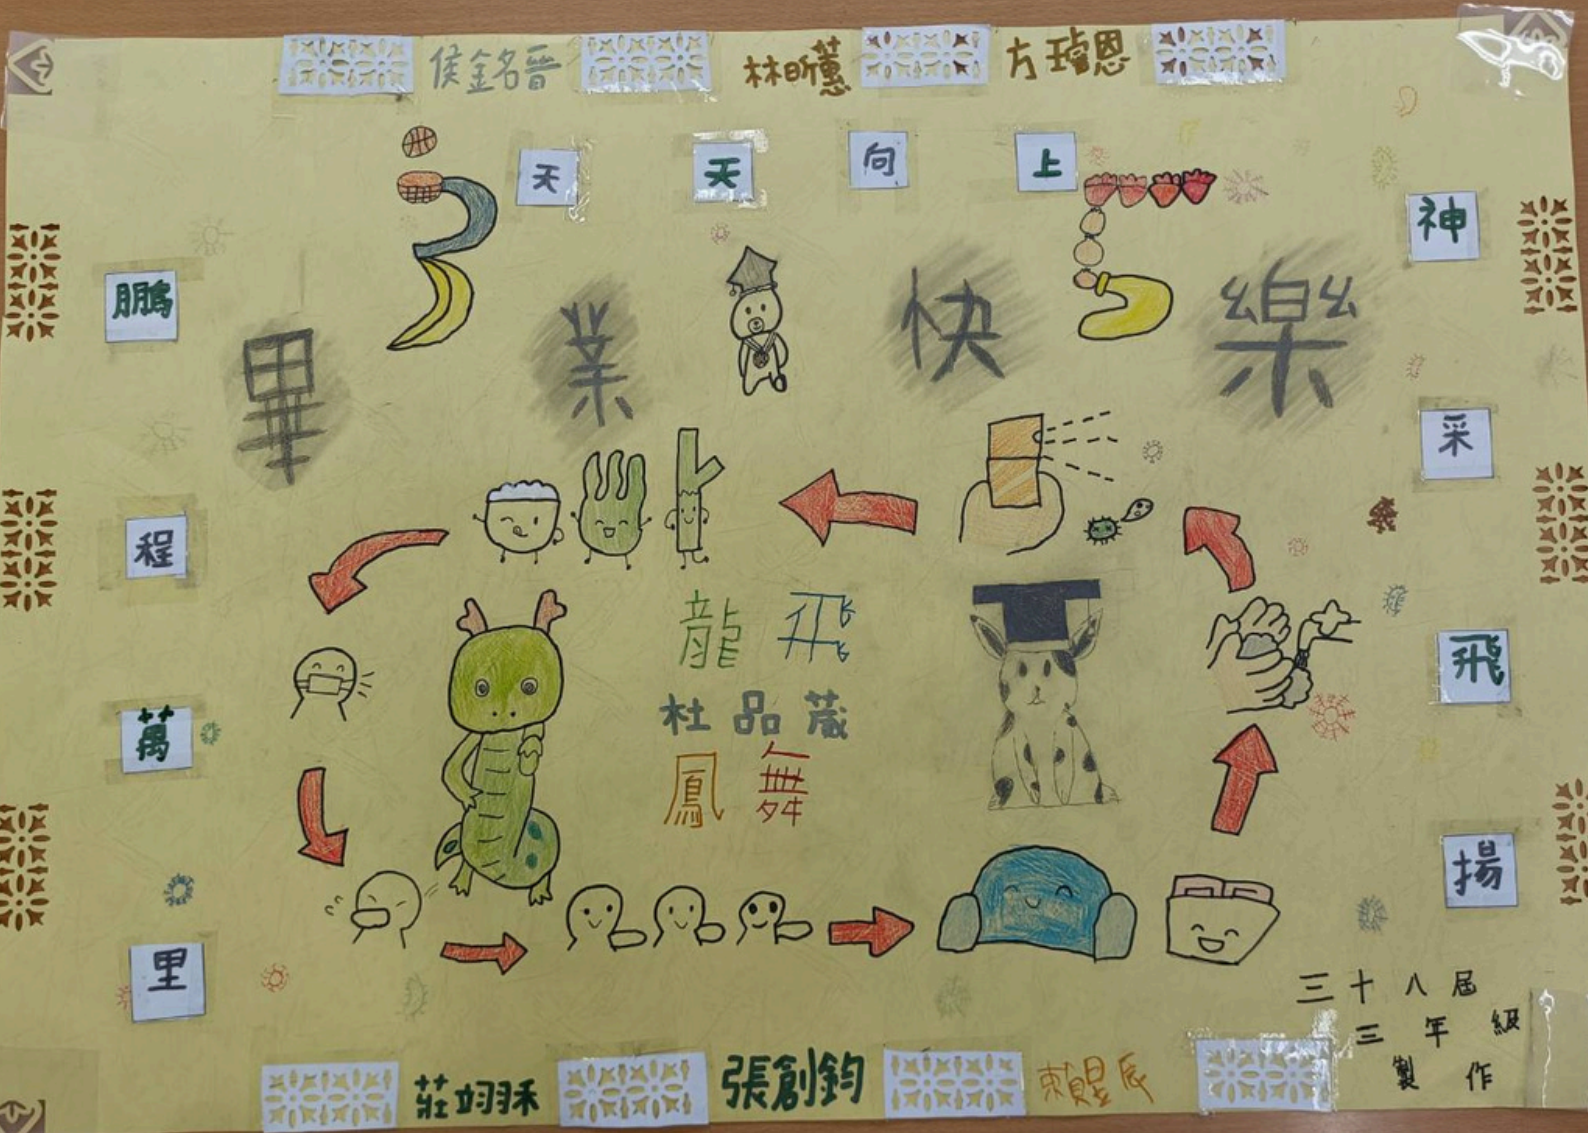 侯銘晉 林昕蕙 方瑋恩
天天向上
鵬程萬里
神采飛揚
畢業快樂
龍飛
杜品葳
鳳舞
三十八屆
三年級
製作
莊翊禾 張創鈞